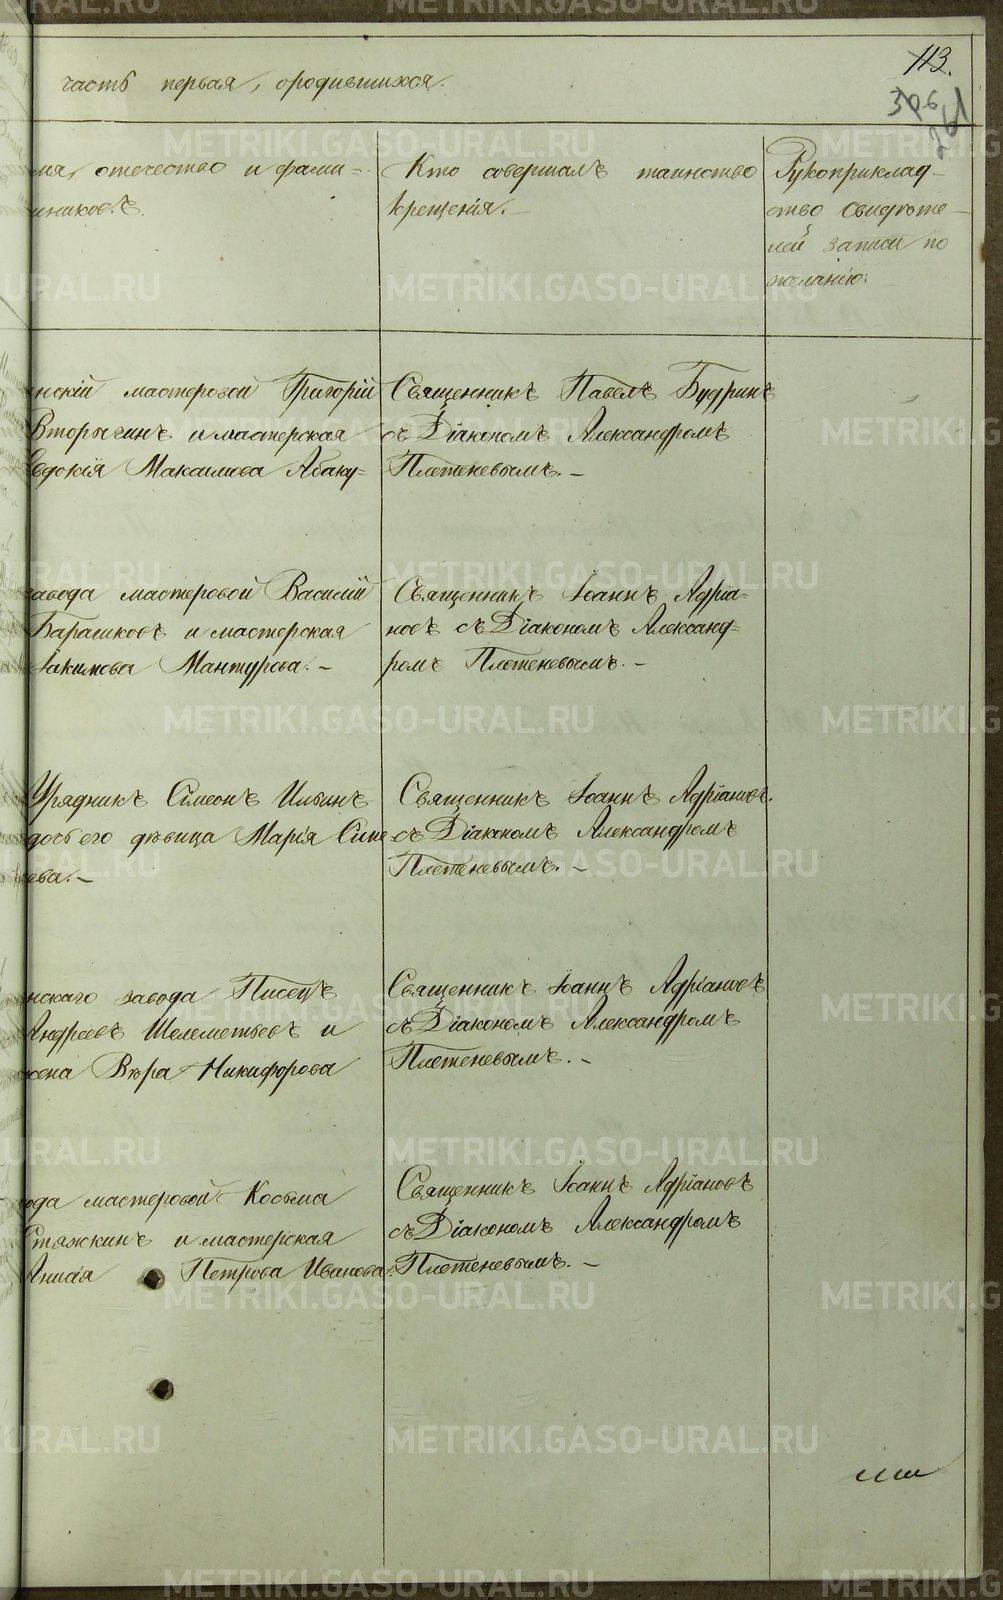 113.
часть первая, о родившихся.
306
261
мя, отечество и фами=
мниковъ.
Кто совершалъ таинство
крещенія.
Рукоприклад-
ство свидѣте-
лей записи по
желанію.
нскій мастеровой Григорій
Вторыгинъ и мастерская
Евдокія Максимова Абаку=
Священникъ Павелъ Будринъ
съ Діакономъ Александромъ
Плотеневымъ. –
завода мастеровой Василій
Барашковъ и мастерская
Іакимова Мантурова. –
Священникъ Іоаннъ Адріа=
новъ съ Діакономъ Александ=
ромъ Плотеневымъ. –
Урядникъ Симеонъ Ильинъ
дочь его дѣвица Марія Симе
ева. –
Священникъ Іоаннъ Адріановъ
съ Діакономъ Александромъ
Плотеневымъ. –
нскаго завода Писецъ
Андреевъ Шелеметьевъ и
жена Вѣра Никифорова
Священникъ Іоаннъ Адріановъ
съ Діакономъ Александромъ
Плотеневымъ. –
ода мастеровой Косьма
Стяжкинъ и мастерская
Анисія Петрова Иванова.
Священникъ Іоаннъ Адріановъ
съ Діакономъ Александромъ
Плотеневымъ. –
METRIKI.GASO-URAL.RU